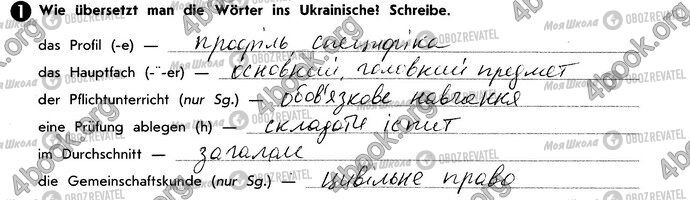 1 Wie übersetzt man die Wörter ins Ukrainische? Schreibe.
das Profil (-e) — профіль, специфіка
das Hauptfach (-¨-er) — основний, головний предмет
der Pflichtunterricht (nur Sg.) — обов'язкове навчання
eine Prüfung ablegen (h) — складати іспит
im Durchschnitt — загалом
die Gemeinschaftskunde (nur Sg.) — цивільне право